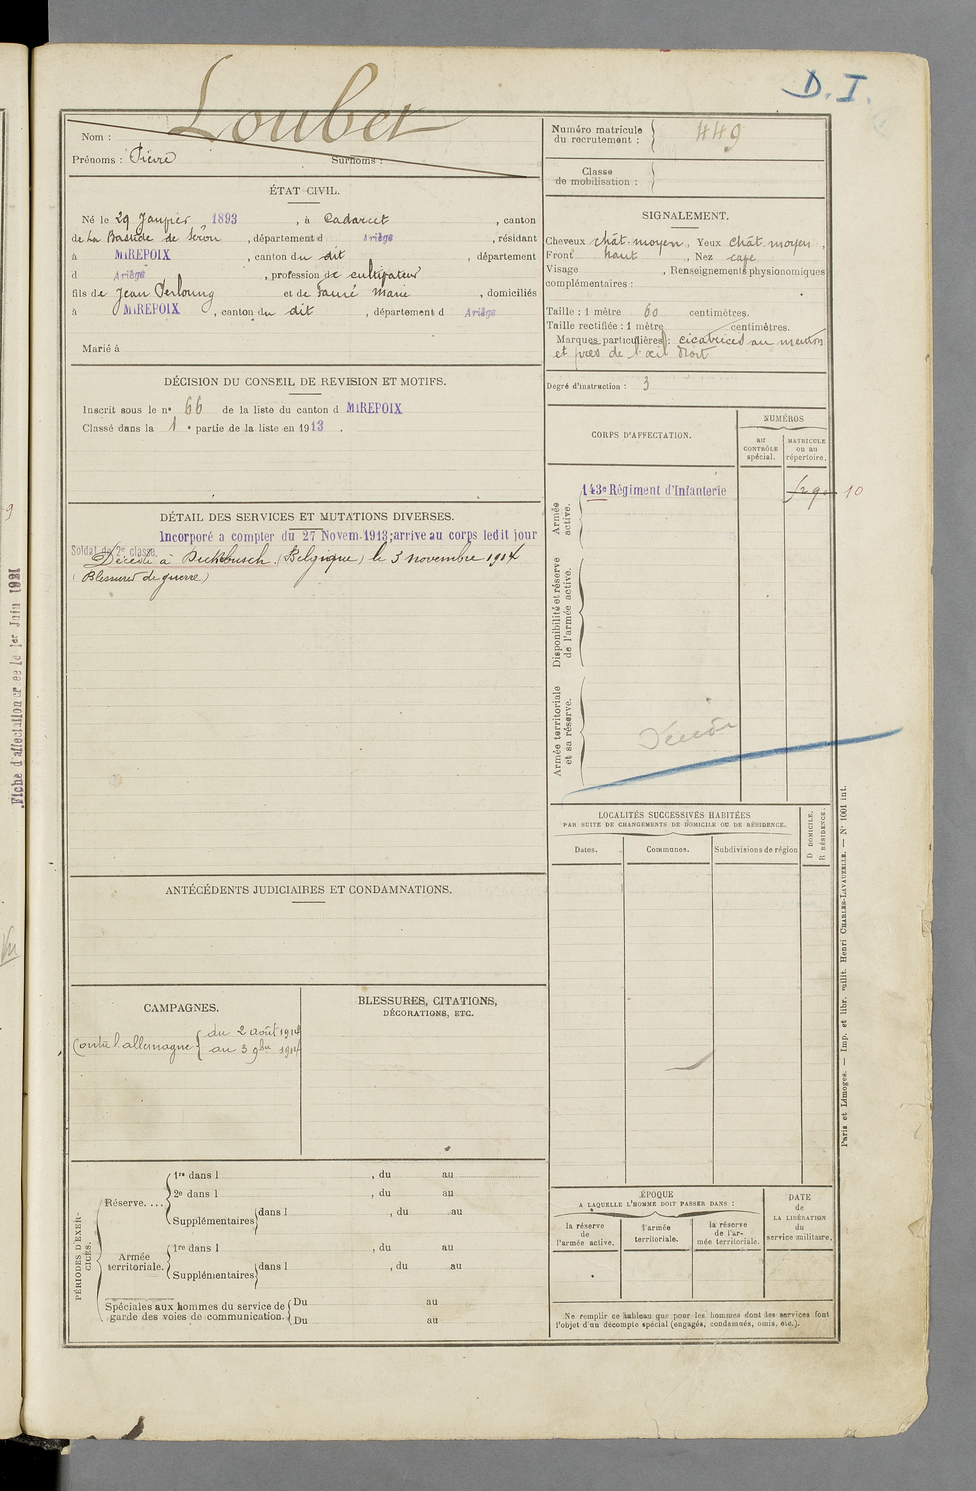 D. I.
Loubet
Nom :
Prénoms : Pierre Surnoms :
ÉTAT CIVIL.
Né le 29 Janvier 1893, à Cadarcet, canton
de La Bastide de Sérou, département d Ariège, résidant
à MIREPOIX, canton du dit, département
d Ariège, profession de cultivateur
fils de Jean et de Fauré Marie, domiciliés
à MIREPOIX, canton du dit, département d Ariège
Marié à
DÉCISION DU CONSEIL DE REVISION ET MOTIFS.
Inscrit sous le n° 66 de la liste du canton d MIREPOIX
Classé dans la 1e partie de la liste en 1913.
DÉTAIL DES SERVICES ET MUTATIONS DIVERSES.
Incorporé a compter du 27 Novem. 1913; arrive au corps ledit jour
Soldat de 2e classe.
Décédé à Dickebusch (Belgique) le 3 novembre 1914
(Blessures de guerre)
ANTÉCÉDENTS JUDICIAIRES ET CONDAMNATIONS.
CAMPAGNES.
Contre l'allemagne { du 2 août 1914
au 3 9bre 1914
BLESSURES, CITATIONS,
DÉCORATIONS, ETC.
PÉRIODES D'EXERCICES.
Réserve....
1re dans l , du au
2e dans l , du au
Supplémentaires { dans l , du au
Armée
territoriale.
1re dans l , du au
Supplémentaires { dans l , du au
Spéciales aux hommes du service de
garde des voies de communication.
Du au
Du au
Numéro matricule
du recrutement : 449
Classe
de mobilisation :
SIGNALEMENT.
Cheveux chât. moyen, Yeux chât. moyen,
Front haut, Nez cave
Visage , Renseignements physionomiques
complémentaires :
Taille : 1 mètre 60 centimètres.
Taille rectifiée : 1 mètre centimètres.
Marques particulières : cicatrices au menton
et près de l'œil droit
Degré d'instruction : 3
CORPS D'AFFECTATION.
NUMÉROS
au
CONTRÔLE
spécial.
MATRICULE
ou au
répertoire.
Armée
active.
143e Régiment d'Infanterie 10
Disponibilité et réserve
de l'armée active.
Armée territoriale
et sa réserve.
Décédé
LOCALITÉS SUCCESSIVES HABITÉES
PAR SUITE DE CHANGEMENTS DE DOMICILE OU DE RÉSIDENCE.
Dates. Communes. Subdivisions de région
D DOMICILE.
R RÉSIDENCE.
ÉPOQUE
A LAQUELLE L'HOMME DOIT PASSER DANS :
la réserve
de
l'armée active.
l'armée
territoriale.
la réserve
de l'armée territoriale.
DATE
de
LA LIBÉRATION
du
service militaire.
Ne remplir ce tableau que pour les hommes dont les services font
l'objet d'un décompte spécial (engagés, condamnés, omis, etc.).
Paris et Limoges. — Imp. et libr. milit. Henri CHARLES-LAVAUZELLE. — N° 1001 int.
Fiche d'affectation créée le 1er Juin 1921